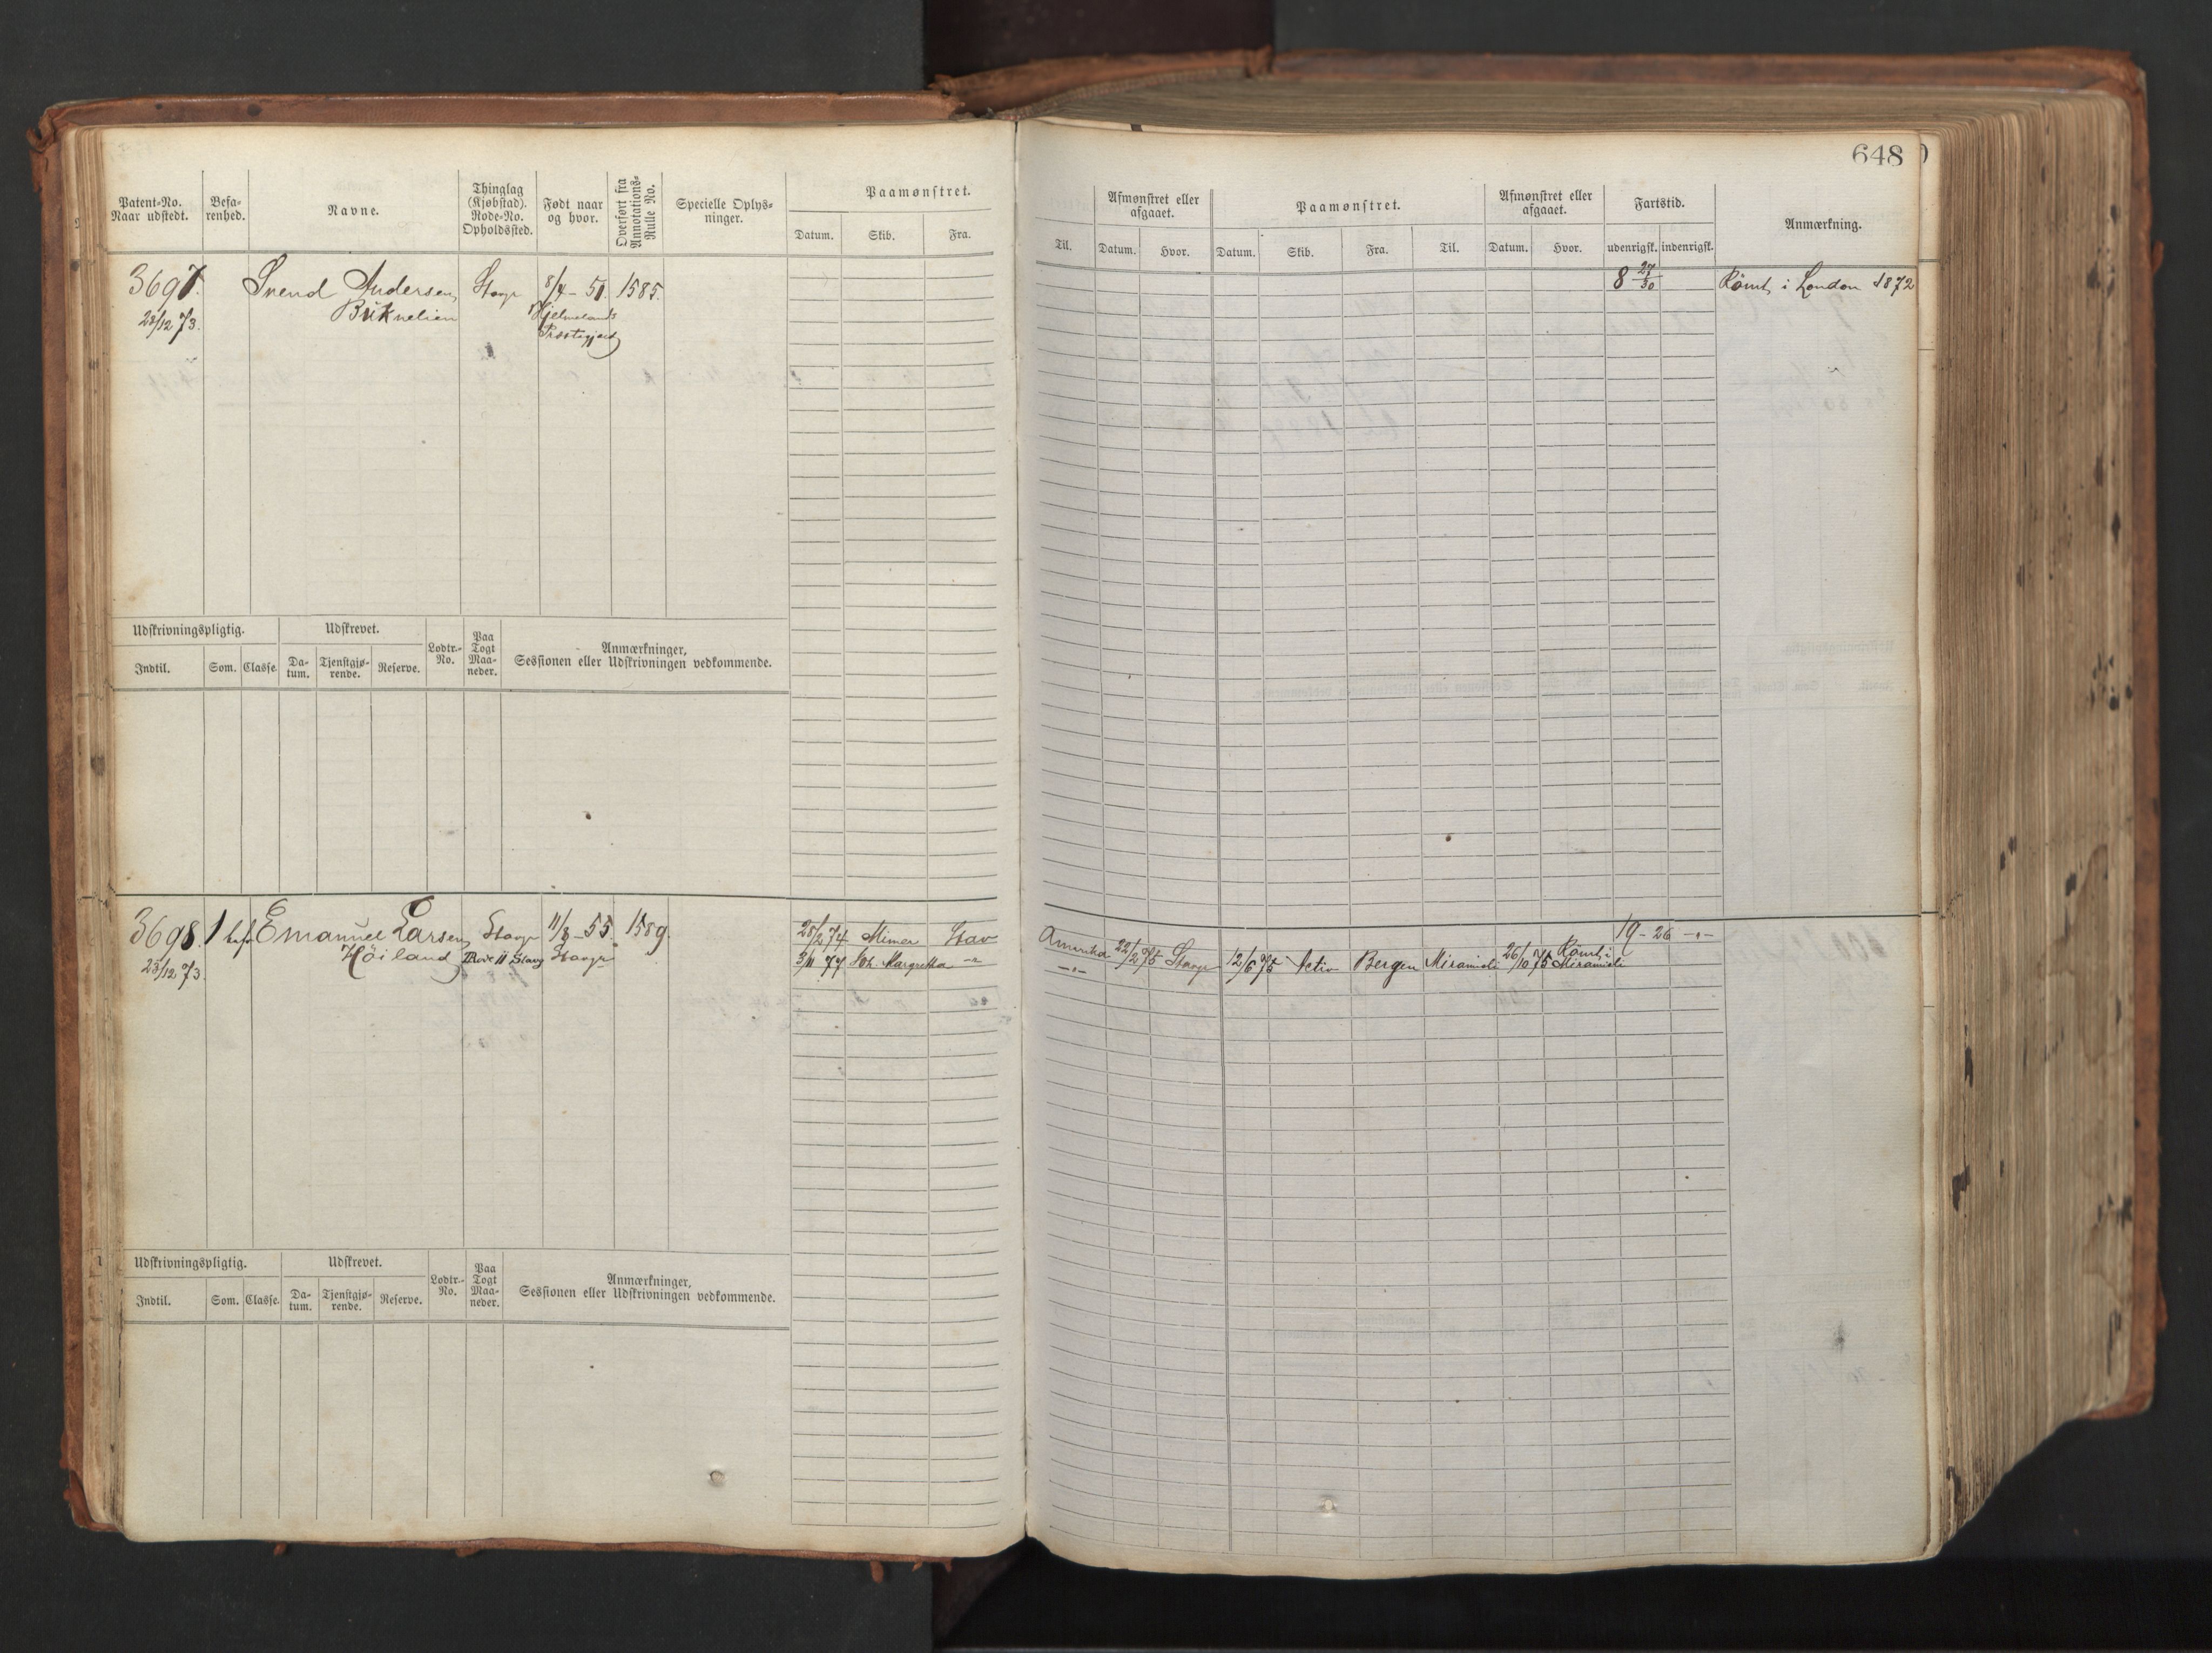 648
Patent-No. Naar udstedt.
Befarenhed.
Navne.
Thinglag (Kjøbstad). Rode-No. Opholdssted.
Født naar og hvor.
Overført fra Annotations-Rulle No.
Specielle Oplysninger.
Paamønstret.
Datum. Skib. Fra.
Til.
Afmønstret eller afgaaet.
Datum. Hvor.
Paamønstret.
Datum. Skib. Fra. Til.
Afmønstret eller afgaaet.
Datum. Hvor.
Fartstid.
udenrigsk. indenrigsk.
Anmærkning.
3697. Svend Andersen Stavgr 8/4 - 51. 1585. 8 27/30 Rømt i London 1872
23/12 73. Buknelien Hjelmelands
Præstegjeld
Udskrivningspligtig. Udskrevet. Lodtr.-No. Paa Togt Maaneder. Anmærkninger, Sessionen eller Udskrivningen vedkommende.
Indtil. Som. Classe. Datum. Tjenstgjørende. Reserve.
3698. 1 bef. Emanuel Larsen Stavgr 11/8 - 55. 1589. 28/2 74 Mimer Stav Amerika 22/2 75 Stavgr 12/6 75 Activ Bergen Miramichi 26/10 75 Rømt i Miramichi 19 - 26 -"-
23/12 73. Höiland Rode 11 Stavg Stavgr 3/11 77 Sk. Margretha -"- -"-
Udskrivningspligtig. Udskrevet. Lodtr.-No. Paa Togt Maaneder. Anmærkninger, Sessionen eller Udskrivningen vedkommende.
Indtil. Som. Classe. Datum. Tjenstgjørende. Reserve.